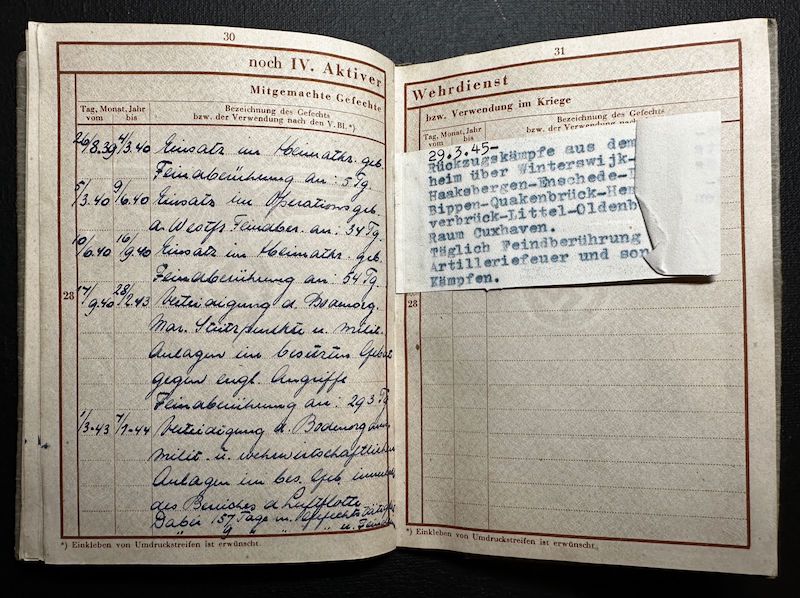 30
noch IV. Aktiver
Mitgemachte Gefechte
Tag, Monat, Jahr
vom bis
Bezeichnung des Gefechts
bzw. der Verwendung nach den V. Bl. *)
26/8.39 4/3.40 Einsatz im Heimatkr. geb.
Feindberührung an: 5 Tg.
5/3.40 9/6.40 Einsatz im Operationsgeb.
a. Westfr Feindber. an: 34 Tg.
10/6.40 16/9.40 Einsatz im Heimatkr. geb.
Feindberührung an: 54 Tg.
28
17/9.40 28/2.43 Verteidigung d. Bodenorg.
Mar. Stützpunkte u. milit.
Anlagen im besetzten Gebiet
gegen engl. Angriffe
Feindberührung an: 293 Tg
1/3-43 7/1-44 Verteidigung d. Bodenorg
milit. u. wehrwirtschaftlichen
Anlagen im bes. Geb.
des Bereiches d Luftflotte
Dabei 157 Tage m.
9 " " " u.
*) Einkleben von Umdruckstreifen ist erwünscht.
31
Wehrdienst
bzw. Verwendung im Kriege
Tag, Monat, Jahr
vom bis
Bezeichnung des Gefechts
bzw. der Verwendung nach
29.3.45-
Rückzugskämpfe aus dem
heim über Winterswijk-
Haaksbergen-Enschede-
Bippen-Quakenbrück-
verbrück-Littel-Oldenb
Raum Cuxhaven.
Täglich Feindberührung
Artilleriefeuer und son
Kämpfen.
28
*) Einkleben von Umdruckstreifen ist erwünscht.